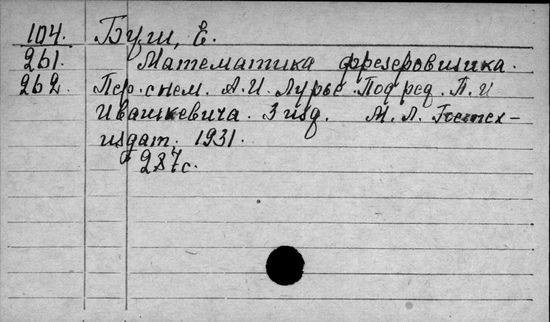 104. Буш, Е.
261. Математика фрезеровщика.
262. Пер. с нем. А. И. Лурье. Под ред. П. И
Ивашкевича. 3 изд. М. Л. Гостех-
издат. 1931.
287 с.